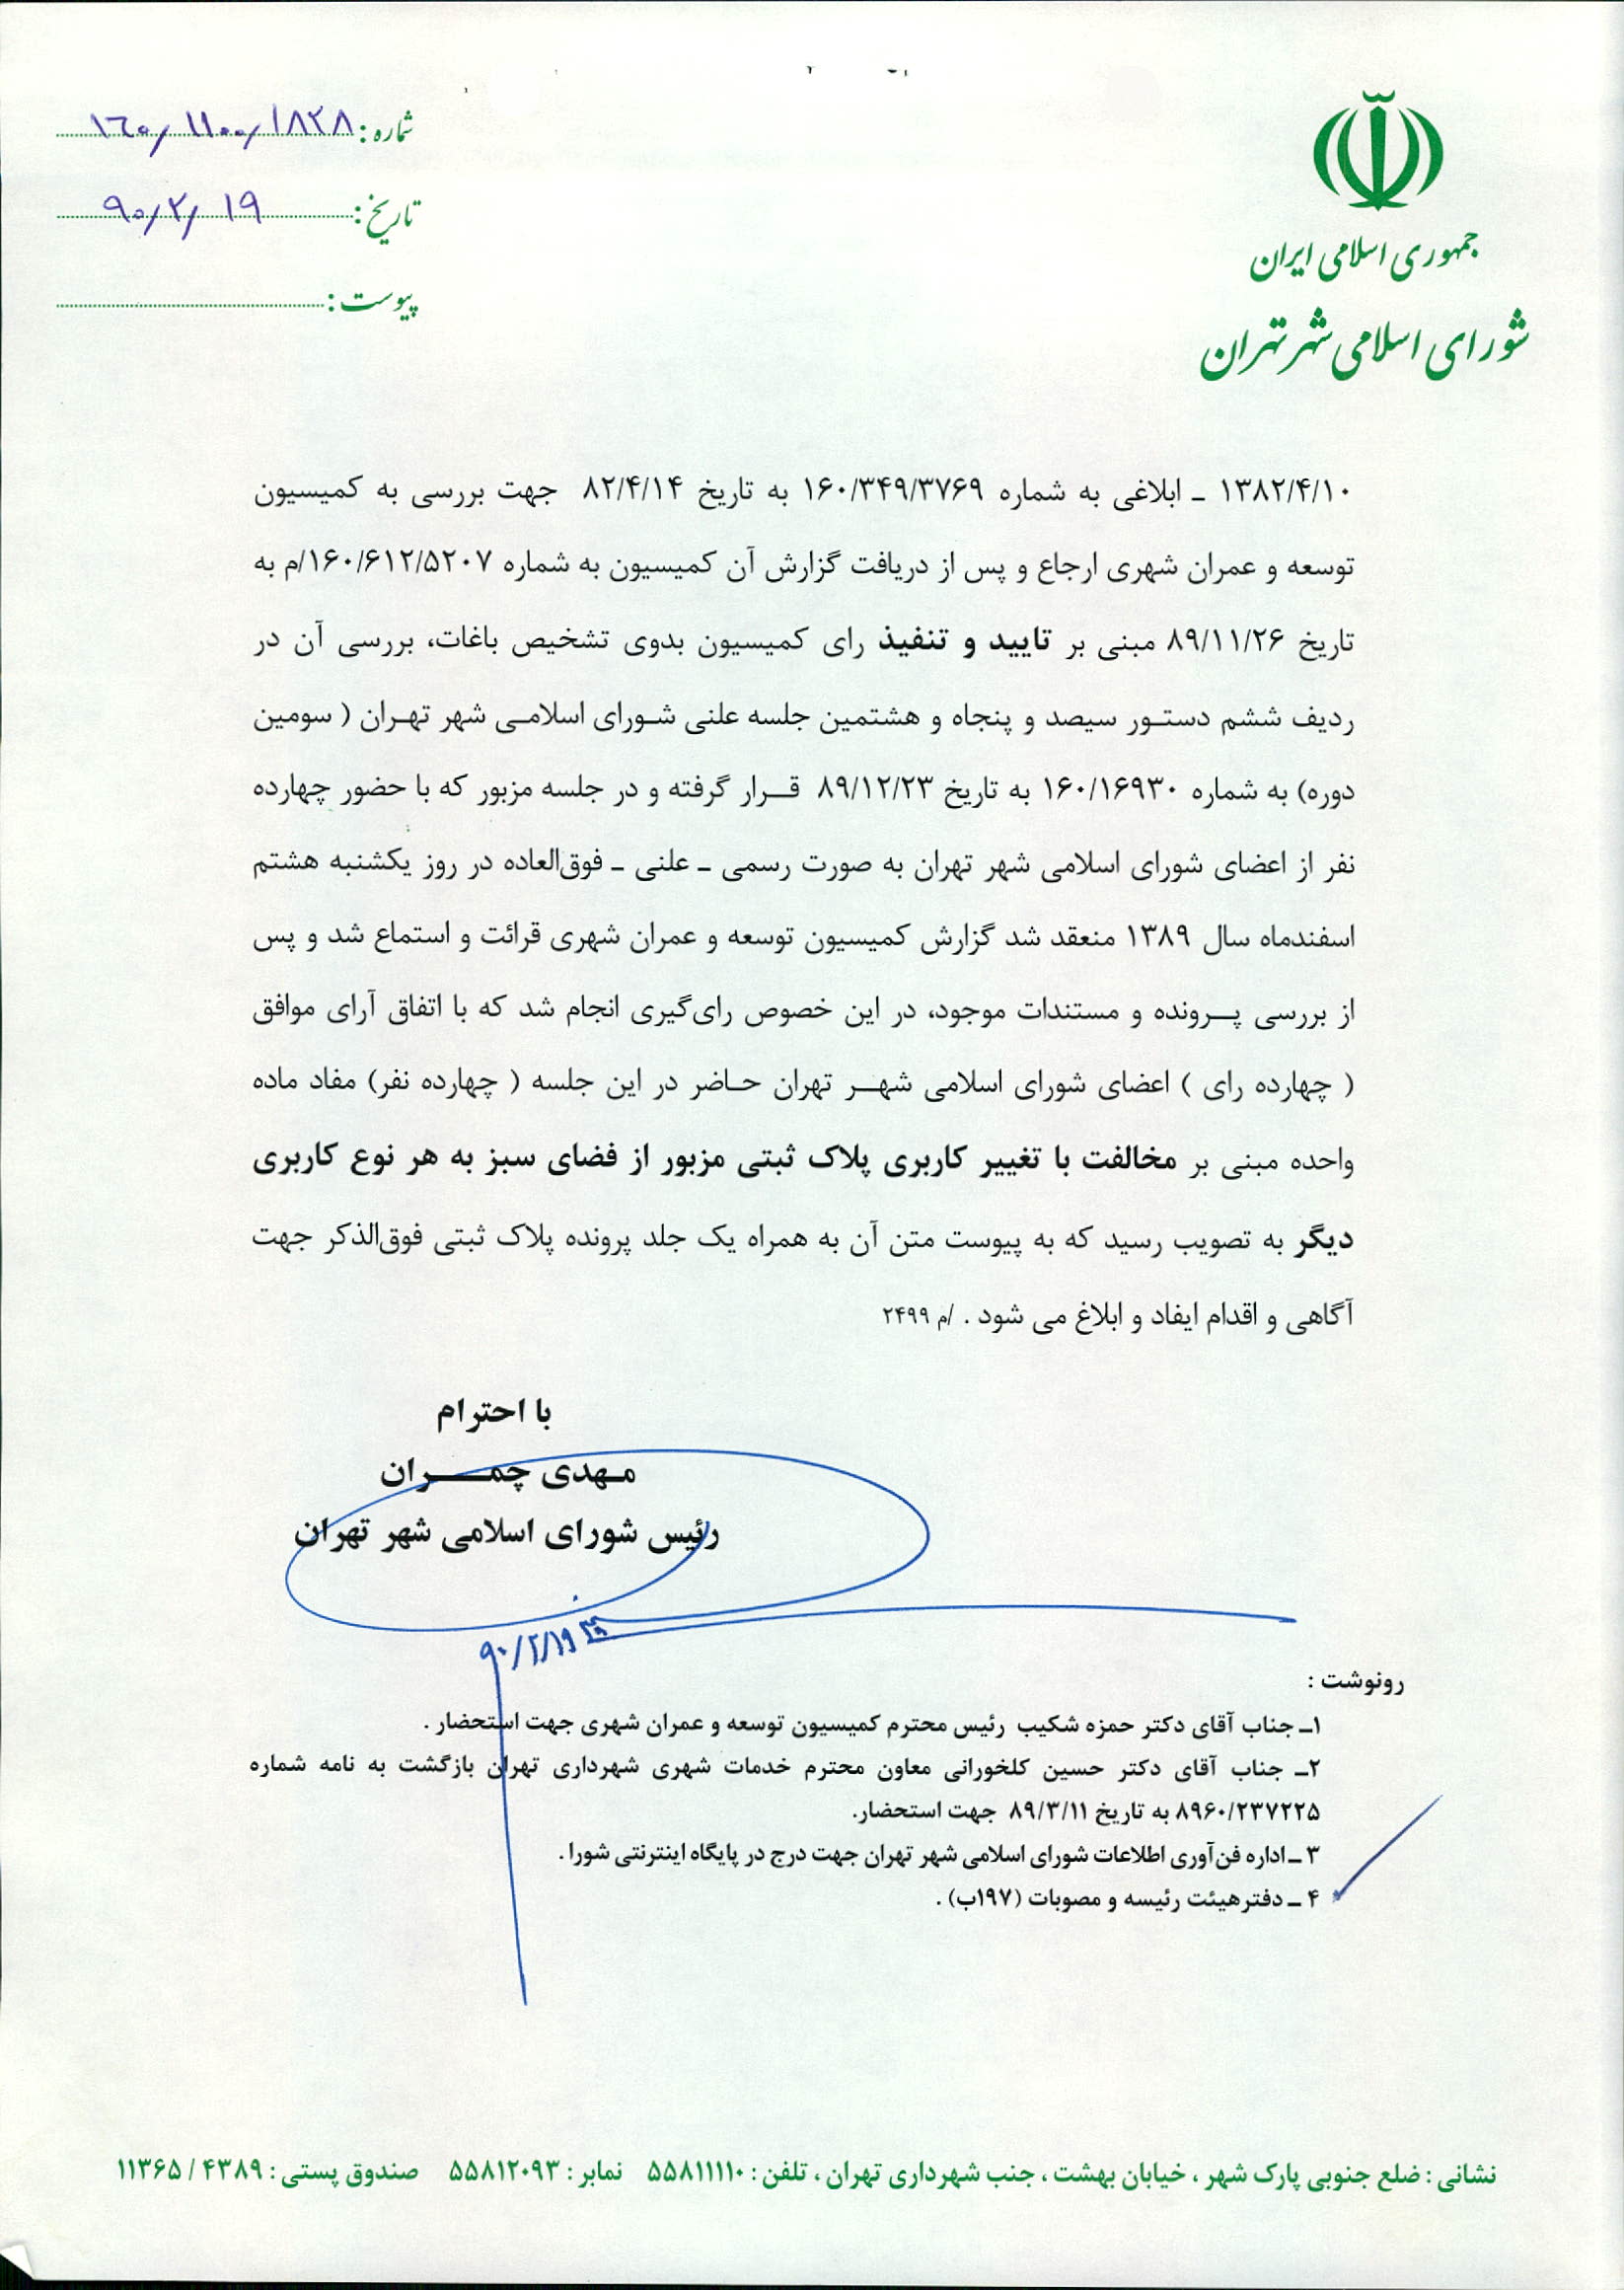 جمهوری اسلامی ایران
شورای اسلامی شهر تهران
شماره: ۱۶۰/۱۱۰۰/۱۸۲۸
تاریخ: ۹۰/۲/۱۹
پیوست:
۱۳۸۲/۴/۱۰ ـ ابلاغی به شماره ۱۶۰/۳۴۹/۳۷۶۹ به تاریخ ۸۲/۴/۱۴ جهت بررسی به کمیسیون
توسعه و عمران شهری ارجاع و پس از دریافت گزارش آن کمیسیون به شماره ۱۶۰/۶۱۲/۵۲۰۷/م به
تاریخ ۸۹/۱۱/۲۶ مبنی بر تایید و تنفیذ رای کمیسیون بدوی تشخیص باغات، بررسی آن در
ردیف ششم دستـور سیصد و پنجاه و هشتمین جلسه علنی شـورای اسلامـی شهر تهـران ( سومین
دوره) به شماره ۱۶۰/۱۶۹۳۰ به تاریخ ۸۹/۱۲/۲۳ قـرار گرفته و در جلسه مزبور که با حضور چهارده
نفر از اعضای شورای اسلامی شهر تهران به صورت رسمی ـ علنی ـ فوق‌العاده در روز یکشنبه هشتم
اسفندماه سال ۱۳۸۹ منعقد شد گزارش کمیسیون توسعه و عمران شهری قرائت و استماع شد و پس
از بررسی پـرونده و مستندات موجود، در این خصوص رای‌گیری انجام شد که با اتفاق آرای موافق
( چهارده رای ) اعضای شورای اسلامی شهـر تهران حـاضر در این جلسه ( چهارده نفر) مفاد ماده
واحده مبنی بر مخالفت با تغییر کاربری پلاک ثبتی مزبور از فضای سبز به هر نوع کاربری
دیگر به تصویب رسید که به پیوست متن آن به همراه یک جلد پرونده پلاک ثبتی فوق‌الذکر جهت
آگاهی و اقدام ایفاد و ابلاغ می شود . /م ۲۴۹۹
با احترام
مـهدی چمـــران
رئیس شورای اسلامی شهر تهران
۹۰/۲/۱۹
رونوشت :
۱ـ جناب آقای دکتر حمزه شکیب رئیس محترم کمیسیون توسعه و عمران شهری جهت استحضار .
۲ـ جناب آقای دکتر حسین کلخورانی معاون محترم خدمات شهری شهرداری تهران بازگشت به نامه شماره
۸۹۶۰/۲۳۷۲۲۵ به تاریخ ۸۹/۳/۱۱ جهت استحضار.
۳ ـ اداره فن‌آوری اطلاعات شورای اسلامی شهر تهران جهت درج در پایگاه اینترنتی شورا .
۴ ـ دفتر هیئت رئیسه و مصوبات (۱۹۷ب) .
نشانی : ضلع جنوبی پارک شهر ، خیابان بهشت ، جنب شهرداری تهران ، تلفن : ۵۵۸۱۱۱۱۰ نمابر : ۵۵۸۱۲۰۹۳ صندوق پستی : ۴۳۸۹ / ۱۱۳۶۵